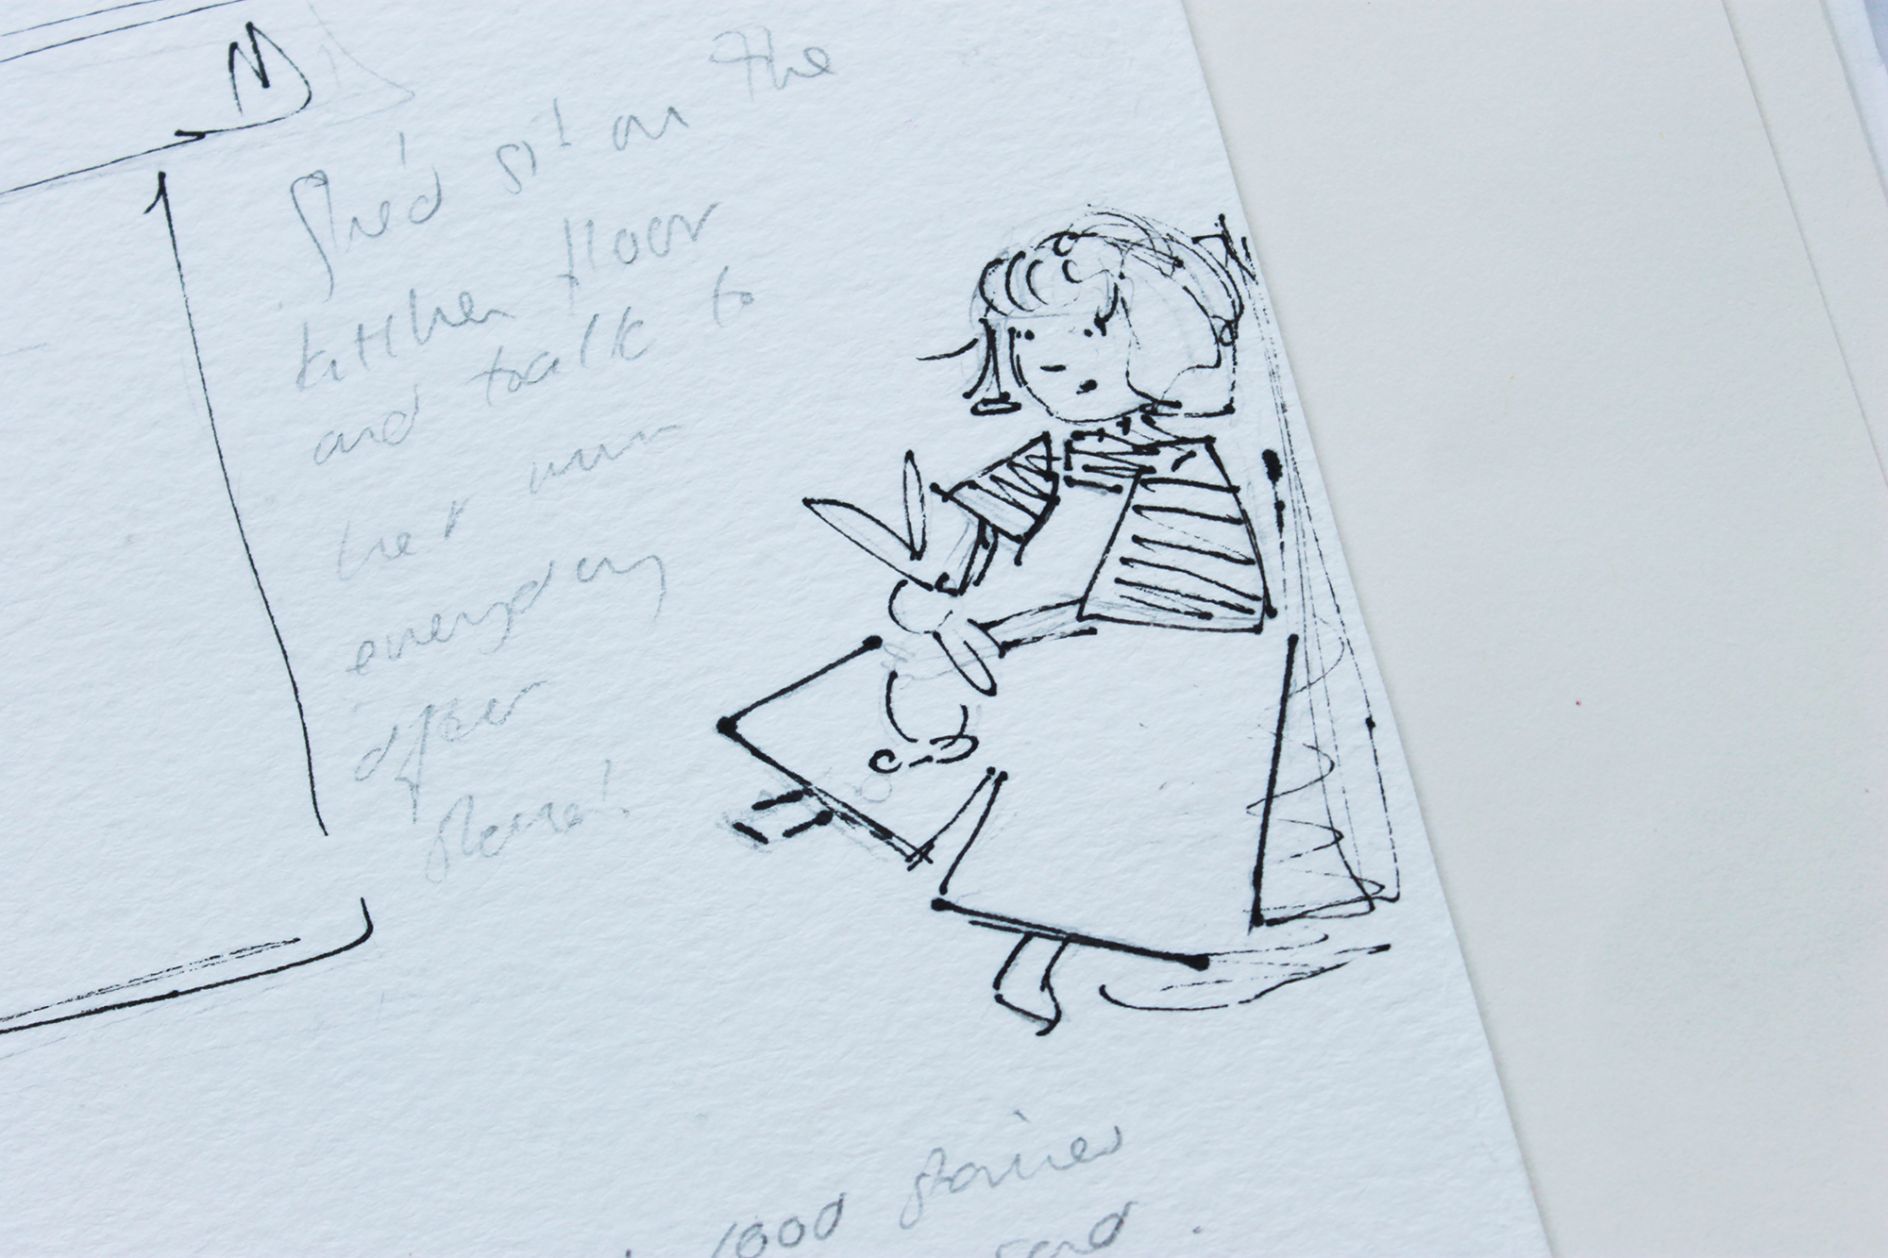 She'd sit on the
kitchen floor
and talk to
her mum
everyday
after
stories